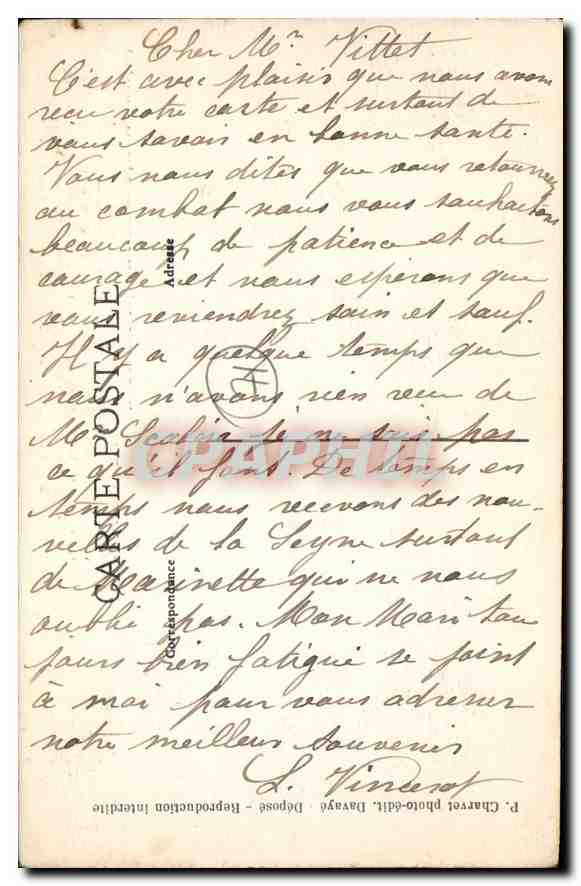 Cher Mr Vittet
C'est avec plaisir que nous avons
recu votre carte et surtout de
vous savoir en bonne sante.
Vous nous dites que vous retournez
au combat nous vous souhaitons
beaucoup de patience et de
courage et nous esperons que
vous reviendrez sain et sauf.
Il y a quelque temps que
nous n'avons rien recu de
Mr je ne sais pas
ce qu'il font. De temps en
temps nous recevons des nou-
velles de la Seyne surtout
de Marinette qui ne nous
oublie pas. Mon Mari tou
jours bien fatigué se joint
à moi pour vous adresser
notre meilleur souvenir
L. Vincent
CARTE POSTALE
Adresse
Correspondance
71
CPAPHIL
P. Charvet photo-édit. Davayé - Déposé - Reproduction interdite